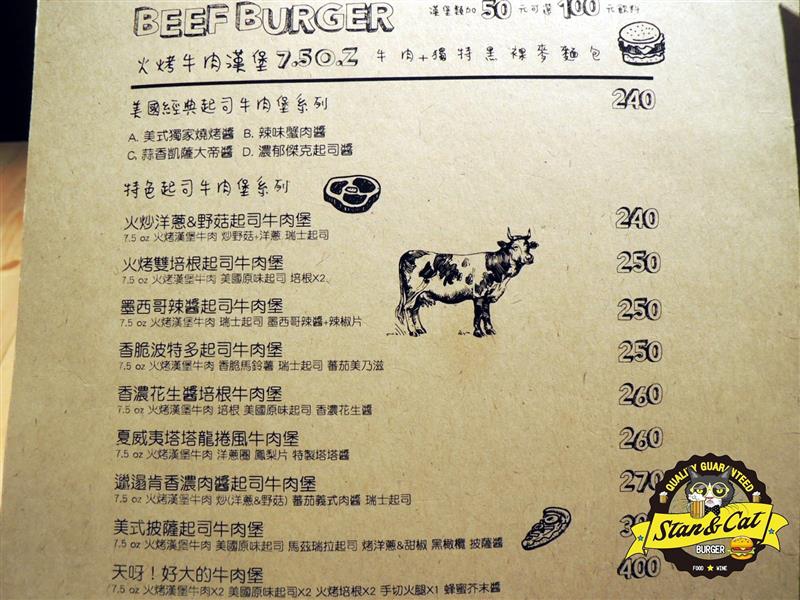 BEEF BURGER 漢堡類加 50 元可選 100 元飲料
火烤牛肉漢堡 7.5O.Z 牛肉+獨特黑裸麥麵包
美國經典起司牛肉堡系列 240
A. 美式獨家燒烤醬 B. 辣味蟹肉醬
C. 蒜香凱薩大帝醬 D. 濃郁傑克起司醬
特色起司牛肉堡系列
火炒洋蔥&野菇起司牛肉堡 240
7.5 oz 火烤漢堡牛肉 炒野菇+洋蔥 瑞士起司
火烤雙培根起司牛肉堡 250
7.5 oz 火烤漢堡牛肉 美國原味起司 培根X2
墨西哥辣醬起司牛肉堡 250
7.5 oz 火烤漢堡牛肉 瑞士起司 墨西哥辣醬+辣椒片
香脆波特多起司牛肉堡 250
7.5 oz 火烤漢堡牛肉 香脆馬鈴薯 瑞士起司 蕃茄美乃滋
香濃花生醬培根牛肉堡 260
7.5 oz 火烤漢堡牛肉 培根 美國原味起司 香濃花生醬
夏威夷塔塔龍捲風牛肉堡 260
7.5 oz 火烤漢堡牛肉 洋蔥圈 鳳梨片 特製塔塔醬
邋遢肯香濃肉醬起司牛肉堡 270
7.5 oz 火烤漢堡牛肉 炒(洋蔥&野菇) 蕃茄義式肉醬 瑞士起司
美式披薩起司牛肉堡
7.5 oz 火烤漢堡牛肉 美國原味起司 馬茲瑞拉起司 烤洋蔥&甜椒 黑橄欖 披薩醬
天呀！好大的牛肉堡 400
7.5 oz 火烤漢堡牛肉X2 美國原味起司X2 火烤培根X2 手切火腿X1 蜂蜜芥末醬
QUALITY GUARANTEED
Stan & Cat
BURGER
FOOD ★ WINE